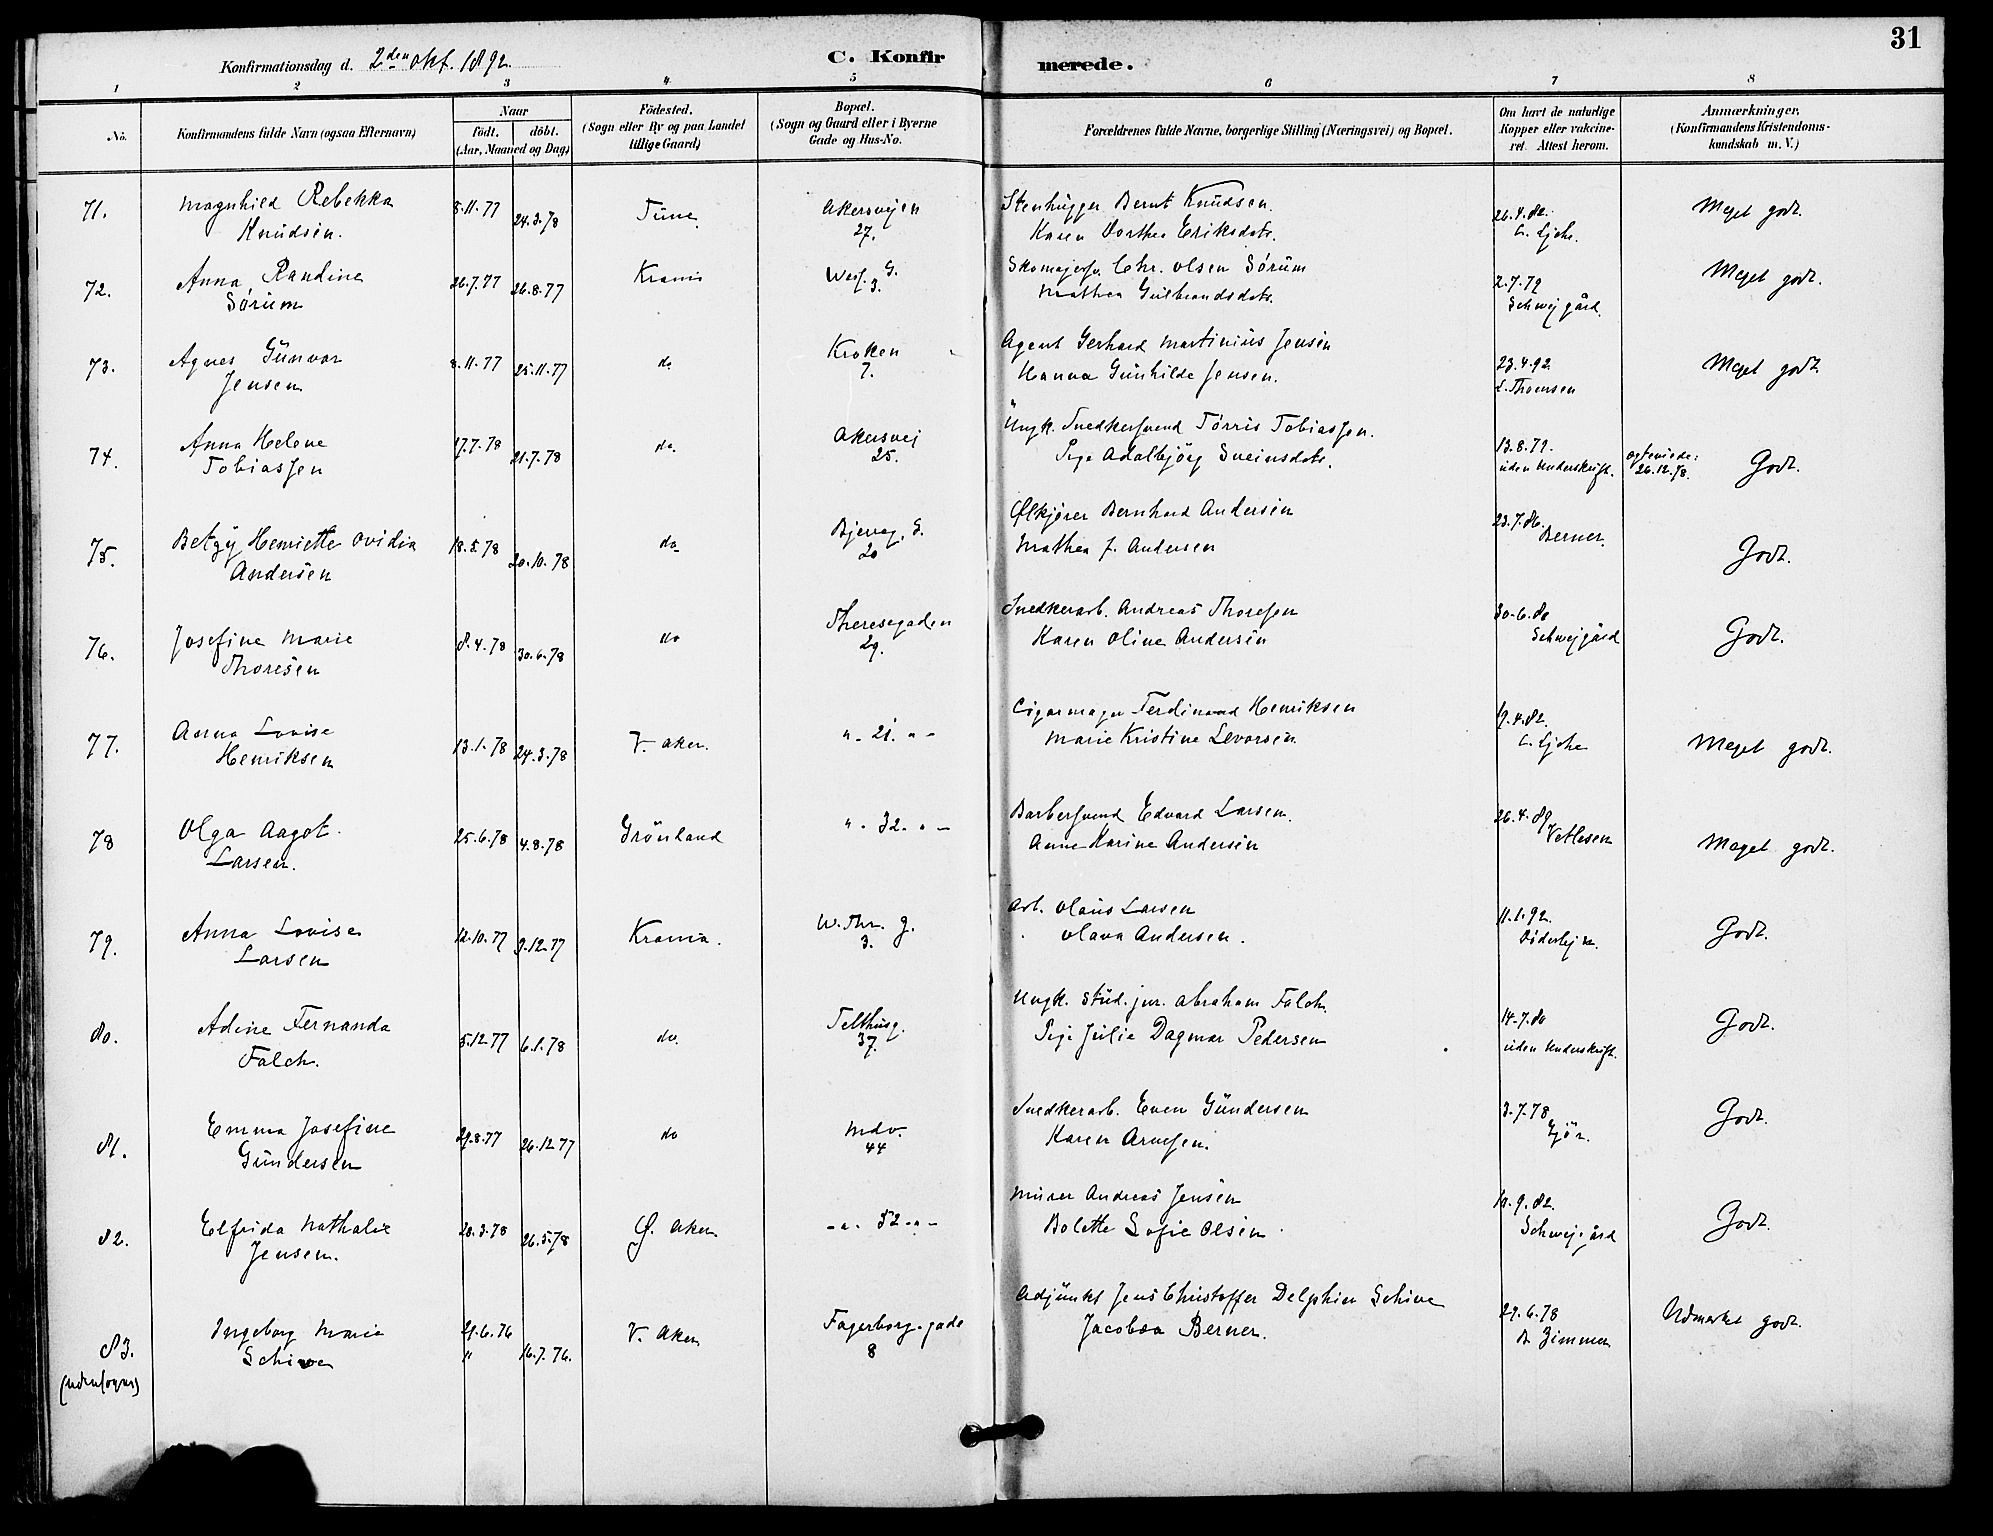 31
Konfirmationsdag d. 2den Okt. 1892.
C. Konfirmerede.
1 2 3 4 5 6 7 8
No.
Konfirmandens fulde Navn (ogsaa Efternavn)
Naar
født. døbt.
(Aar, Maaned og Dag)
Födested.
(Sogn eller By og paa Landet
tillige Gaard)
Bopæl.
(Sogn og Gaard eller i Byerne
Gade og Hus-No.
Forældrenes fulde Navne, borgerlige Stilling (Næringsvei) og Bopæl.
Om havt de naturlige
Kopper eller vakcine-
ret. Attest herom.
Anmærkninger,
(Konfirmandens Kristendoms-
kundskab m. V.)
71. Magnhild Rebekka 8.11.77 24.3.78 Tune Akersvejen Stenhugger Bernt Knudsen. 26.4.82. Meget godt.
Knudsen. 27. Karen Dorthea Eriksdatr.
72. Anna Randine 26.7.77 26.8.77 Krania Wesf. G. Skomagersv. Chr. Olsen Sörum 2.7.79 Meget godt.
Sörum 3. Mathea Gulbrandsdatr. Schwejgård.
73. Agnes Gunvor 8.11.77 25.11.77 do Kroken Agent Gerhard Martinius Jensen 23.4.92. Meget godt.
Jensen 7. Hanna Gunhilde Jensen. L. Thomsen
74. Anna Helene 17.7.78 21.7.78 do. Akersvej Ungk. Snedkersvend Törris Tobiassen. 13.8.79. Godt.
Tobiassen 25. Pige Adalbjörg Sveinsdatr. uden Underskrift. 26.12.78.
75. Betzy Henriette Ovidia 18.5.78 20.10.78 do Bjerreg. G. Ølkjører Bernhard Andersen 23.7.86. Godt.
Andersen 20 Mathea J. Andersen Berner.
76. Josefine Marie 8.4.78 30.6.78 do Theresegaden Snedkerarb. Andreas Thoresen 30.6.80 Godt.
Thoresen 29. Karen Oline Andersen Schwejgård
77. Anna Lovise 13.1.78 24.3.78 V. Aker. " 21. " Cigarmager Ferdinand Henriksen 19.4.82. Meget godt.
Henriksen Marie Kristine Levorsen
78 Olga Aagot 25.6.78 4.8.78 Grönland " 32. " Barbersvend Edvard Larsen. 26.4.89 Meget godt.
Larsen. Anne Karine Andersen Vetlesen
79. Anna Lovise 12.10.77 9.12.77 Krania. W. Thr. G. Arb. Olaus Larsen 11.1.92. Godt.
Larsen 3. Olava Andersen. Döderlejn.
80. Adine Fernanda 5.12.77 6.1.78 do. Telthusg. Ungk. Stud. jur. Abraham Falch 14.7.80 Godt.
Falch. 37. Pige Julie Dagmar Pedersen uden Underskrift.
81. Emma Josefine 29.8.77 26.12.77 do Mdv. Snedkerarb. Even Gundersen 3.7.78 Godt.
Gundersen 44 Karen Arnesen. Gjör.
82. Elfrida Nathalie 28.3.78 26.5.78 Ø. Aker " 52 " Murer Andreas Jensen 10.9.82. Godt.
Jensen. Bolette Sofie Olsen Schwejgård
83. Ingeborg Marie 29.6.76 16.7.76. V. Aker Fagerborg-gade Adjunkt Jens Christoffer Delphin Schive 29.6.78 Udmærket godt.
(udensogns) Schive " 8 Jacobea Berner. B. Zimmer